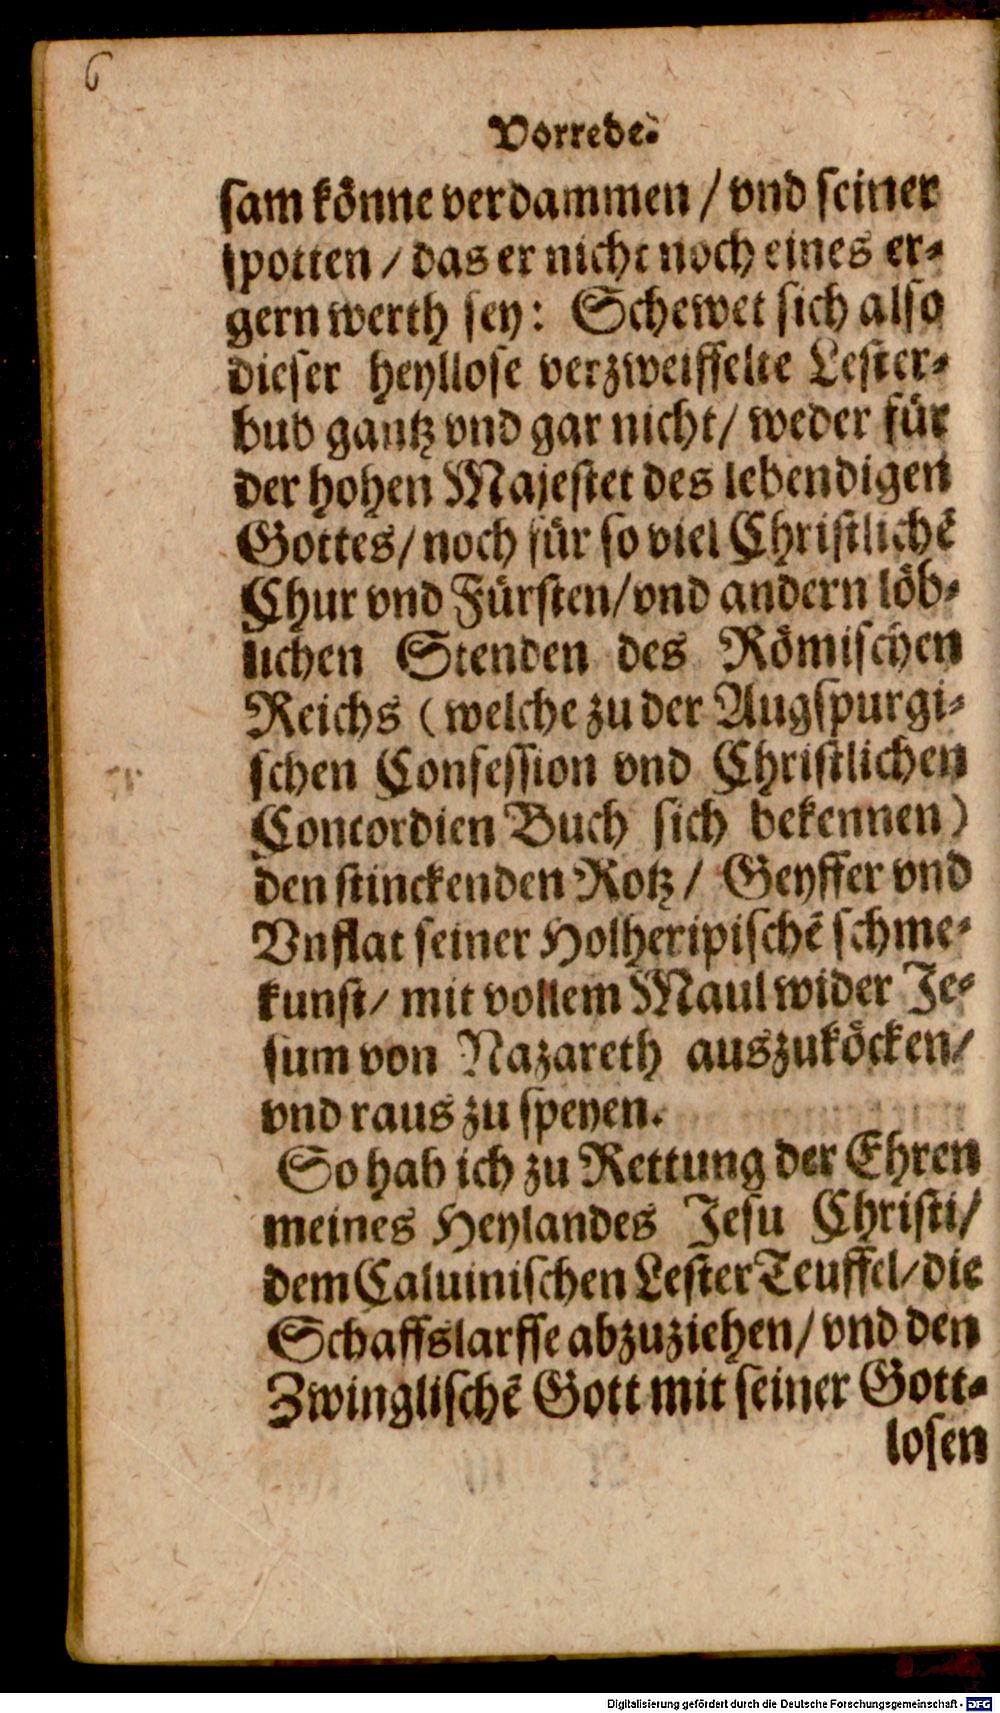 6
Vorrede.
sam könne verdammen / vnd seiner
spotten / das er nicht noch eines er-
gern werth sey: Schewet sich also
dieser heyllose verzweiffelte Lester-
bub gantz vnd gar nicht / weder für
der hohen Majestet des lebendigen
Gottes / noch für so viel Christlichē
Chur vnd Fürsten / vnd andern löb-
lichen Stenden des Römischen
Reichs ( welche zu der Augspurgi-
schen Confession vnd Christlichen
Concordien Buch sich bekennen )
den stinckenden Rotz / Geyffer vnd
Vnflat seiner Holheripischē schme-
kunst / mit vollem Maul wider Je-
sum von Nazareth auszuköcken /
vnd raus zu speyen.
So hab ich zu Rettung der Ehren
meines Heylandes Jesu Christi /
dem Caluinischen Lester Teuffel / die
Schaffslarffe abzuziehen / vnd den
Zwinglischē Gott mit seiner Gott-
losen
Digitalisierung gefördert durch die Deutsche Forschungsgemeinschaft - DFG